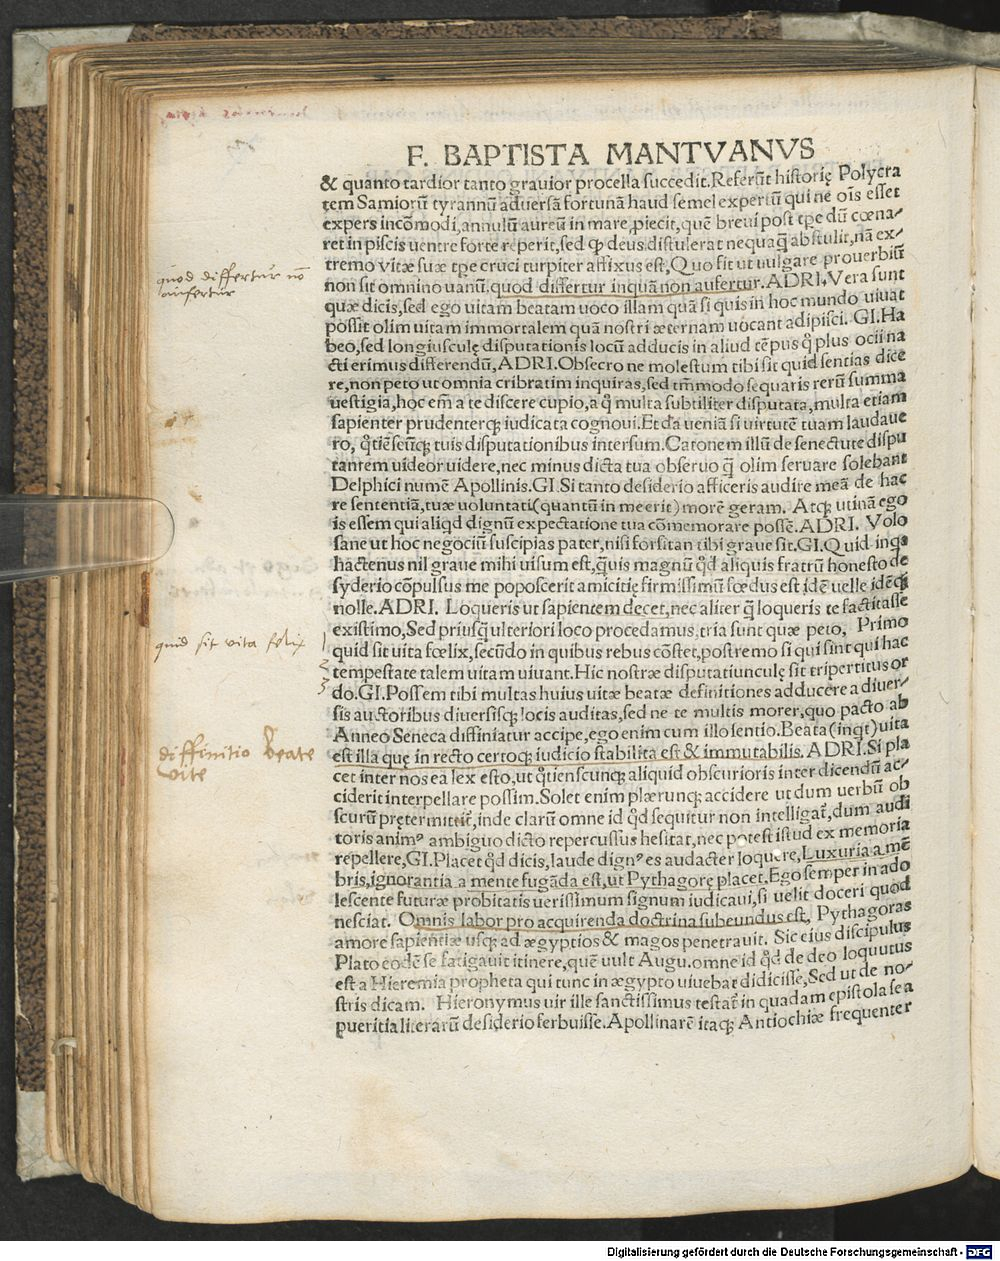 F. BAPTISTA MANTVANVS
& quanto tardior tanto grauior procella succedit. Referũt historię Polycra
tem Samiorũ tyrannũ aduersã fortunã haud semel expertũ qui ne oĩs esset
expers incõmodi, annulũ aureũ in mare, piecit, quẽ breui post tp̃e dũ cœna-
ret in piscis uentre forte reperit, sed ꝙ deus distulerat nequaq̃ abstulit, nã ex-
tremo vitæ suæ tp̃e cruci turpiter affixus est, Quo fit ut uulgare prouerbiũ
non sit omnino uanũ, quod differtur inquã non aufertur. ADRI. Vera sunt
quæ dicis, sed ego uitam beatam uoco illam quã si quis in hoc mundo uiuat
possit olim uitam immortalem quã nostri æternam uocant adipisci. GI. Ha
beo, sed longiusculę disputationis locũ adducis in aliud tẽpus q̃ plus ocii na
cti erimus differendũ, ADRI. Obsecro ne molestum tibi sit quid sentias dice
re, non peto ut omnia cribratim inquiras, sed tm̃modo sequaris rerũ summa
uestigia, hoc em̃ a te discere cupio, a q̃ multa subtiliter disputata, multa etiam
sapienter prudenterqꝫ iudicata cognoui. Et da ueniã si uirtutẽ tuam laudaue
ro, q̃tiẽscũqꝫ tuis disputationibus intersum. Catonem illũ de senectute dispu
tantem uideor uidere, nec minus dicta tua obseruo q̃ olim seruare solebant
Delphici numẽ Apollinis. GI. Si tanto desiderio afficeris audire meã de hac
re sententiã, tuæ uoluntati (quantũ in me erit) morẽ geram. Atqꝫ utinã ego
is essem qui aliqd dignũ expectatione tua cõmemorare possẽ. ADRI. Volo
sane ut hoc negociũ suscipias pater, nisi forsitan tibi graue sit. GI. Quid inqs
hactenus nil graue mihi uisum est, q̃uis magnũ q̃d aliquis fratrũ honesto de
syderio cõpulsus me poposcerit amicitię firmissimũ fœdus est idẽ uelle idẽqꝫ
nolle. ADRI. Loqueris ut sapientem decet, nec aliter q̃ loqueris te factitasse
existimo, Sed priusq̃ ulteriori loco procedamus, tria sunt quæ peto, Primo
quid sit uita fœlix, secũdo in quibus rebus cõstet, postremo si qui sint qui hac
tempestate talem uitam uiuant. Hic nostræ disputatiunculę sit tripertitus or
do. GI. Possem tibi multas huius uitæ beatæ definitiones adducere a diuer-
sis auctoribus diuersisqꝫ locis auditas, sed ne te multis morer, quo pacto ab
Anneo Seneca diffiniatur accipe, ego enim cum illo sentio. Beata (inqt) uita
est illa quę in recto certoqꝫ iudicio stabilita est & immutabilis. ADRI. Si pla
cet inter nos ea lex esto, ut q̃tienscunqꝫ aliquid obscurioris inter dicendũ ac-
ciderit interpellare possim. Solet enim plærunqꝫ accidere ut dum uerbũ ob
scurũ pretermittit̃, inde clarũ omne id q̃d sequitur non intelligat̃, dum audi
toris animꝰ ambiguo dicto repercussus hesitat, nec potest istud ex memoria
repellere, GI. Placet q̃d dicis, laude dignꝰ es audacter loquere, Luxuria a mẽ
bris, ignorantia a mente fugãda est, ut Pythagorę placet. Ego semper in ado
lescente futuræ probitatis uerissimum signum iudicaui, si uelit doceri quod
nesciat. Omnis labor pro acquirenda doctrina subeundus est, Pythagoras
amore sapientiæ usqꝫ ad ægyptios & magos penetrauit. Sic eius discipulus
Plato eodẽ se fatigauit itinere, quẽ uult Augu. omne id q̃d de deo loquutus
est a Hieremia propheta qui tunc in ægypto uiuebat didicisse, Sed ut de no-
stris dicam. Hieronymus uir ille sanctissimus testat̃ in quadam epistola se a
pueritia literarũ desiderio ferbuisse. Apollinarẽ itaqꝫ Antiochiæ frequenter
quod differtur nõ
aufertur
quid sit vita felix
1
2
3
diffinitio beate
vite
Digitalisierung gefördert durch die Deutsche Forschungsgemeinschaft - DFG